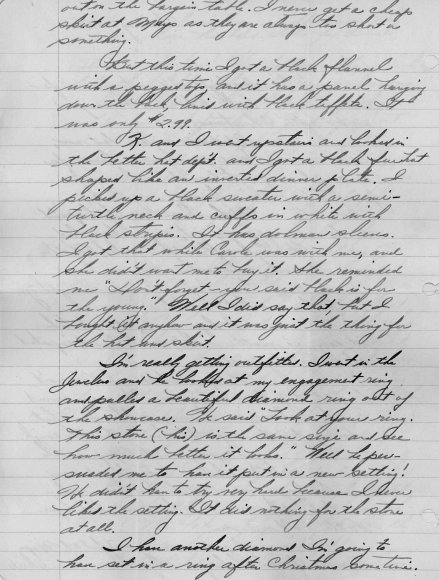 out on the bargain table. I never get a cheap
skirt at Mays as they are always too short or
something.
But this time I got a black flannel
with a pegged top, and it has a panel hanging
down the back lined with black taffeta. It
was only $2.99.
K. and I went upstairs and looked in
the better hat dep't. and I got a black fur hat
shaped like an inverted dinner plate. I
picked up a black sweater with a semi-
turtle neck and cuffs in white with
black stripe. It has dolman sleeves.
I got that while Carole was with me, and
she didn't want me to buy it. She reminded
me "Don't forget - you said black is for
the young." Well I did say that, but I
bought it anyhow and it was just the thing for
the hat and skirt.
I'm really getting outfitted. I went in the
Jewelers and he looked at my engagement ring
and pulled a beautiful diamond ring out of
the showcase. He said "Look at yours ring.
This stone (his) is the same size and see
how much better it looks." Well he per-
suaded me to have it put in a new setting!
He didn't have to try very hard because I never
liked the setting. It did nothing for the stone
at all.
I have another diamond I'm going to
have set in a ring after Christmas sometime.